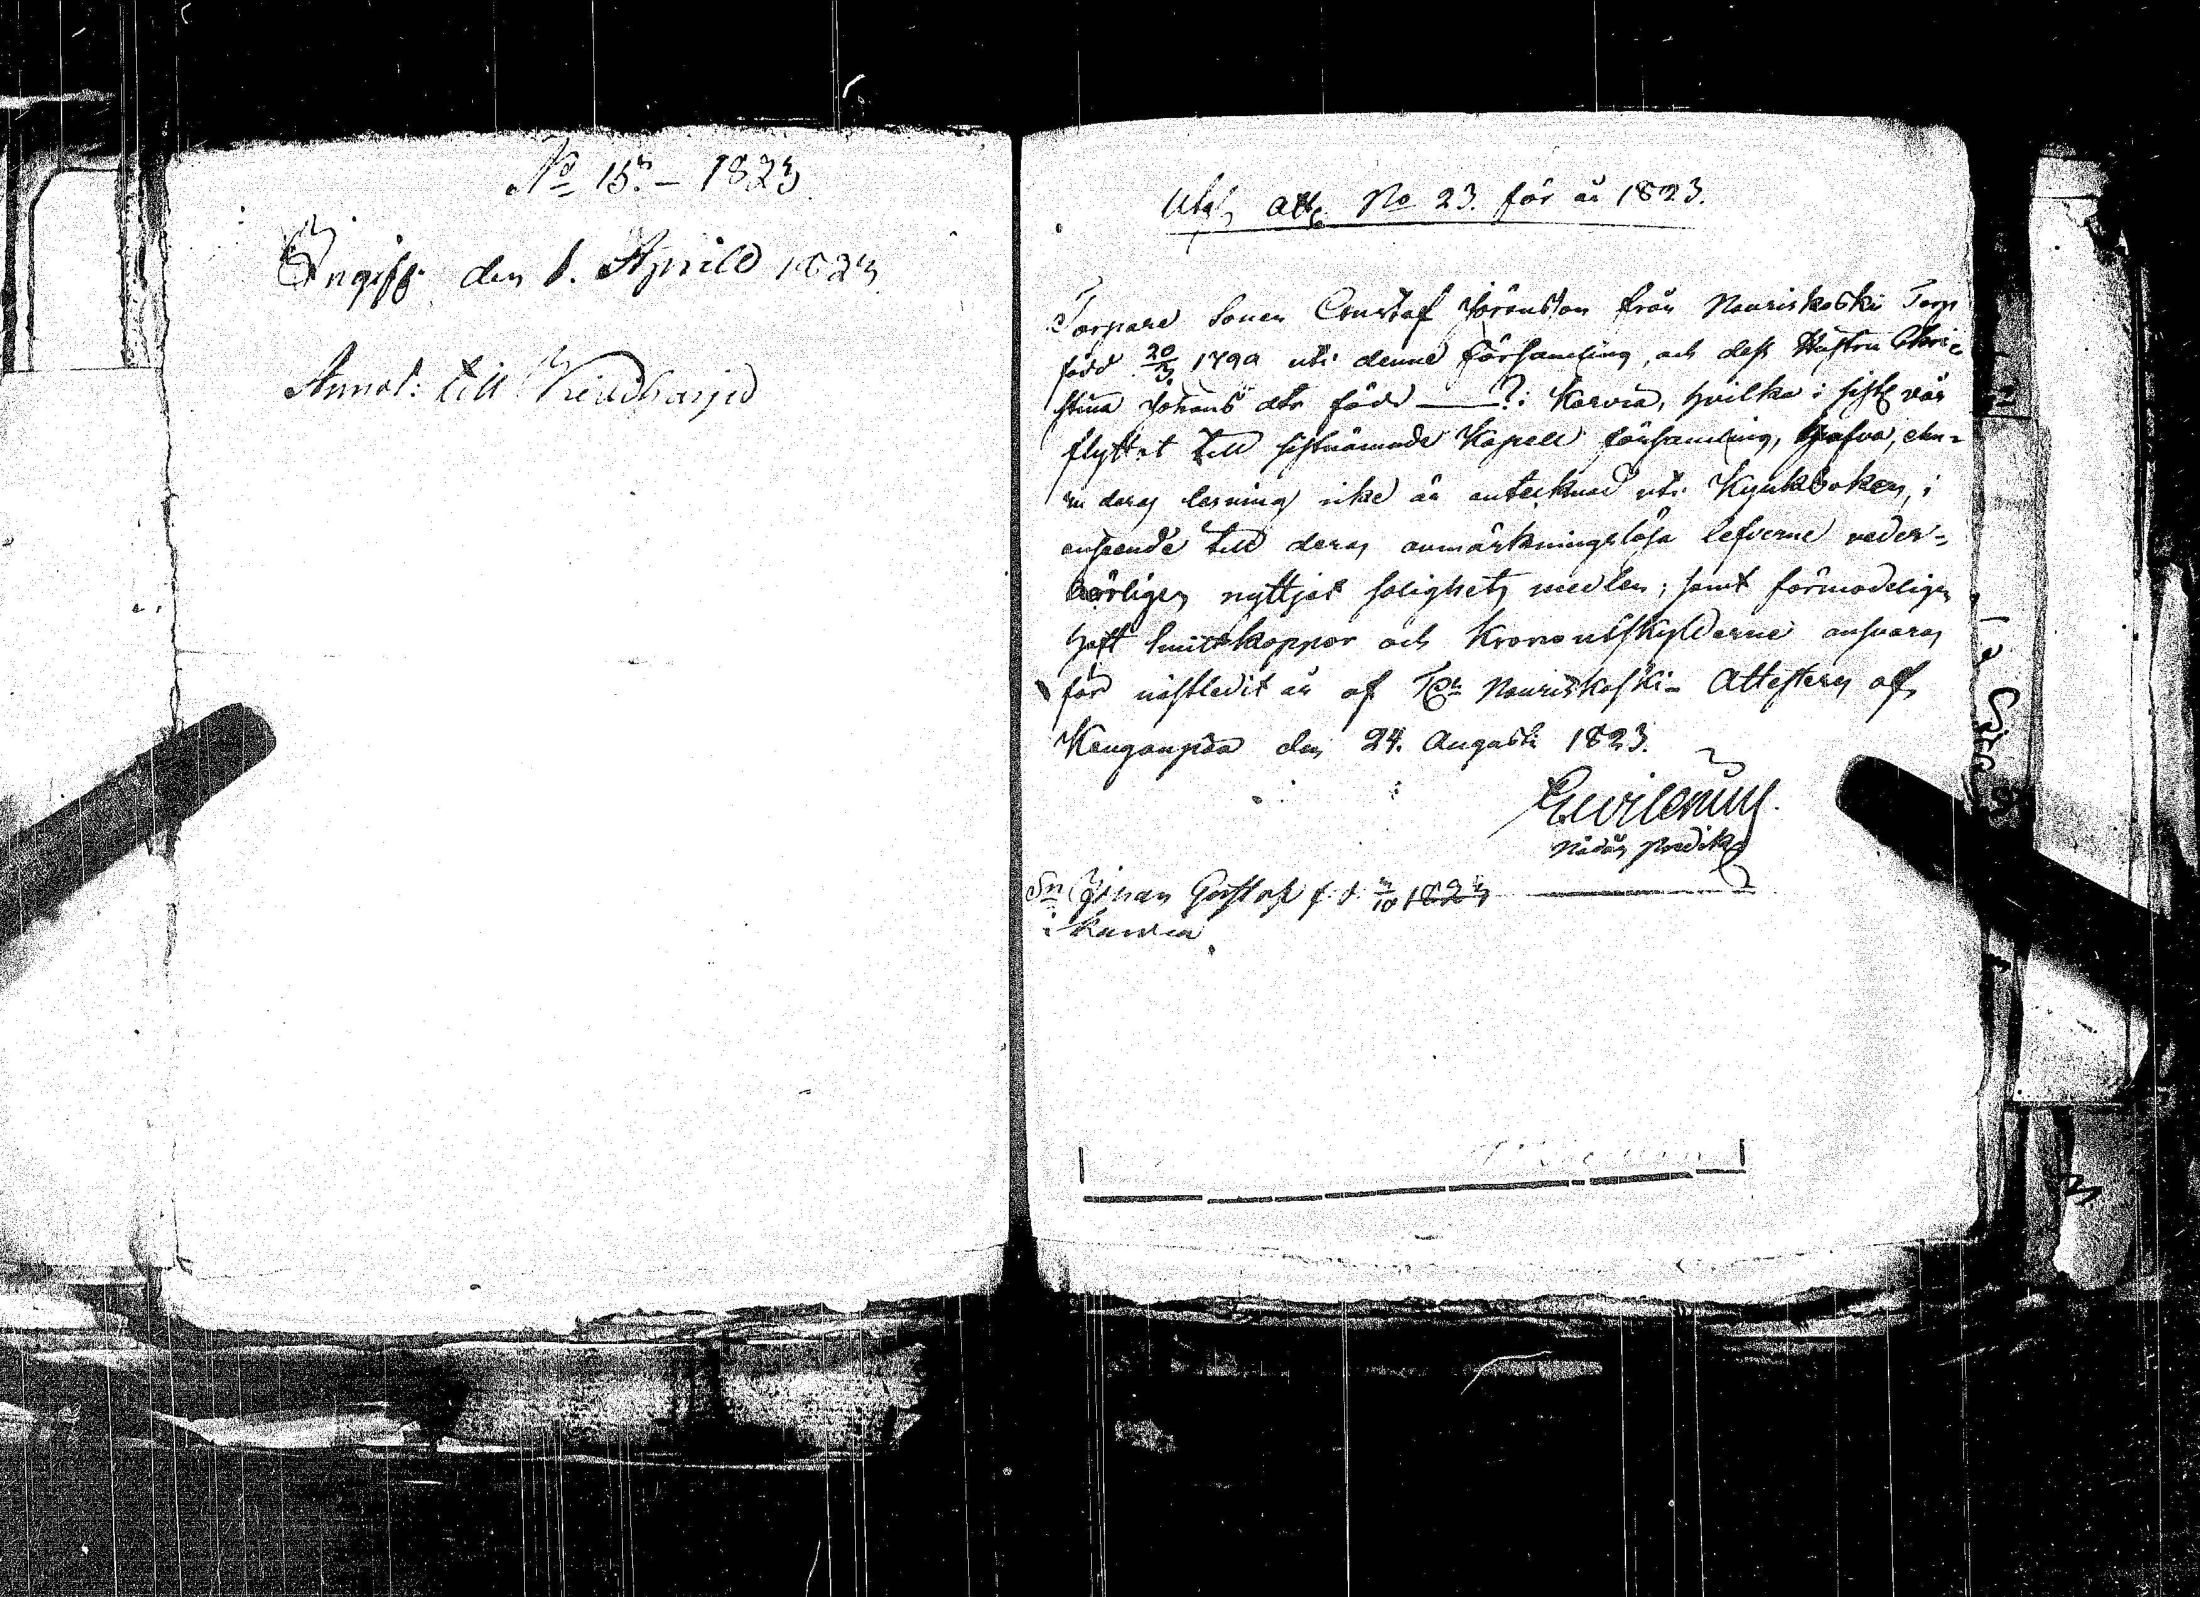 No 15. - 1823
Ingift den 1. Aprill 1823
Annot: till
Utg. att. No 23. för år 1823.
Torpare Sonen Gustaf Jöransson från Nouriskoski Torp
född 20/3 179 uti denne Församling, och dess Hustru Chri-
stina Johans dtr född —? i Karvia, hvilka i sistl vår
flyttat till sistnämnde Kapell församling, hafva, ehu-
ru deras läsning icke är antecknad uti Kyrkboken, i
anseende till deras anmärkningslösa lefverne veder-
börligen nyttjat salighets medlen; samt förmodeligen
haft Smittkoppor och Kronoutskylderne ansvaras
för nästledit år af Nouriskoski - Attesteras af
Kangaupää den 24. Augusti 1823.
Nådår Predik
Sn Johan Gustaf f. d. 3/10 1823
i Karvia